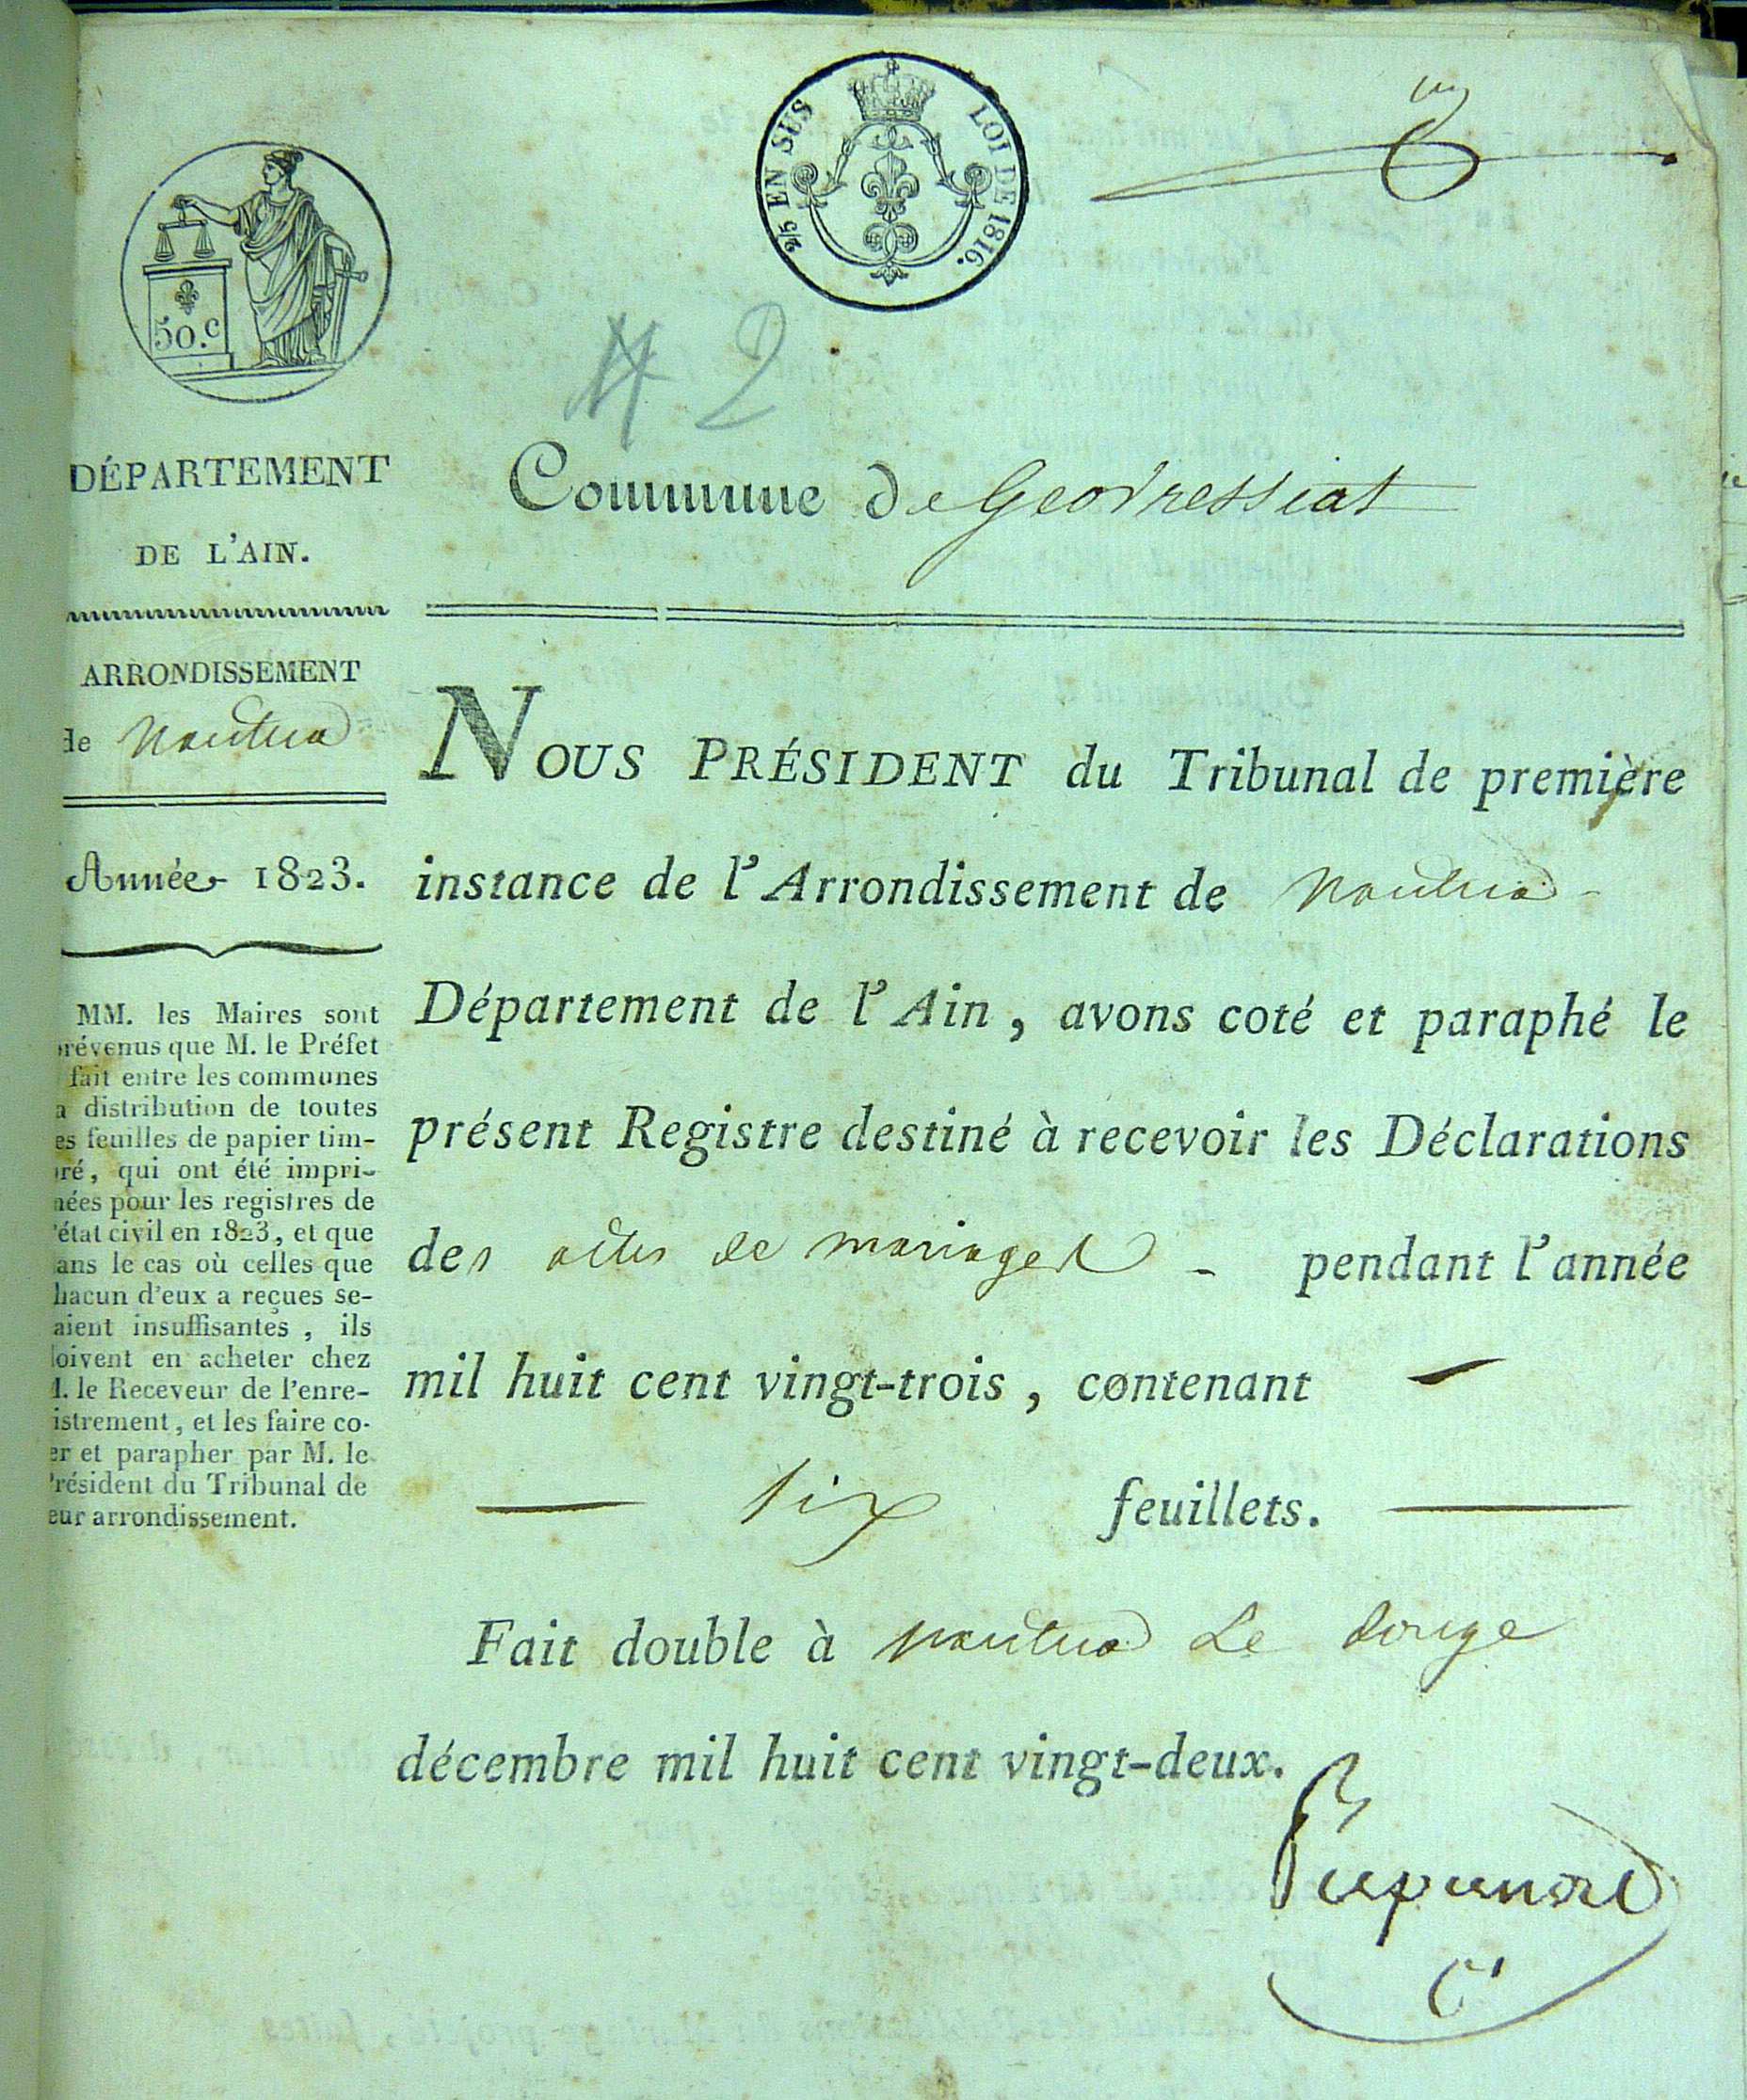 2/5 EN SUS
LOI DE 1816.
50.c
2
DÉPARTEMENT
DE L'AIN.
ARRONDISSEMENT
de Nantua
Année 1823.
MM. les Maires sont
révenus que M. le Préfet
fait entre les communes
a distribution de toutes
es feuilles de papier tim-
ré, qui ont été impri-
ées pour les registres de
'état civil en 1823, et que
ans le cas où celles que
hacun d'eux a reçues se-
aient insuffisantes, ils
oivent en acheter chez
. le Receveur de l'enre-
istrement, et les faire co-
er et parapher par M. le
résident du Tribunal de
eur arrondissement.
Commune de Geovressiat
NOUS PRÉSIDENT du Tribunal de première
instance de l'Arrondissement de Nantua -
Département de l'Ain, avons coté et paraphé le
présent Registre destiné à recevoir les Déclarations
des actes de mariages - pendant l'année
mil huit cent vingt-trois, contenant -
— six feuillets. —
Fait double à Nantua Le douze
décembre mil huit cent vingt-deux.